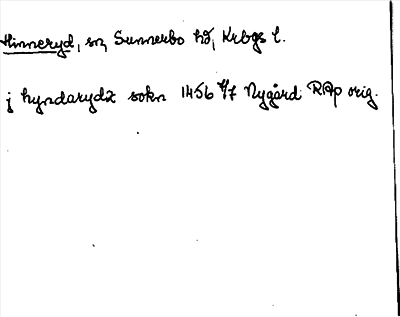 Hinneryd, sn, Sunnerbo hd, Krbgs l.
j hyndarydz sokn 1456 4/7 Nygård RAp orig.